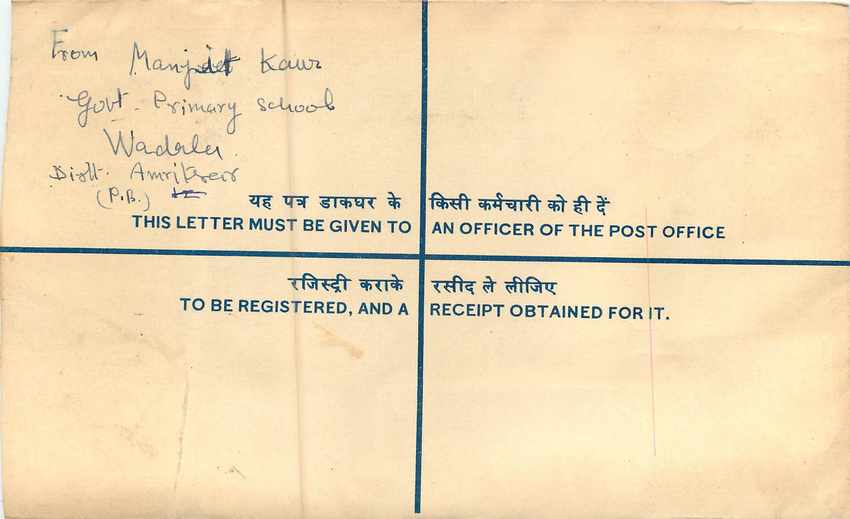 From Manjeet Kaur
Govt. Primary School
Wadala
Distt. Amritsar
(P.B.)
यह पत्र डाकघर के किसी कर्मचारी को ही दें
THIS LETTER MUST BE GIVEN TO AN OFFICER OF THE POST OFFICE
रजिस्ट्री कराके रसीद ले लीजिए
TO BE REGISTERED, AND A RECEIPT OBTAINED FOR IT.